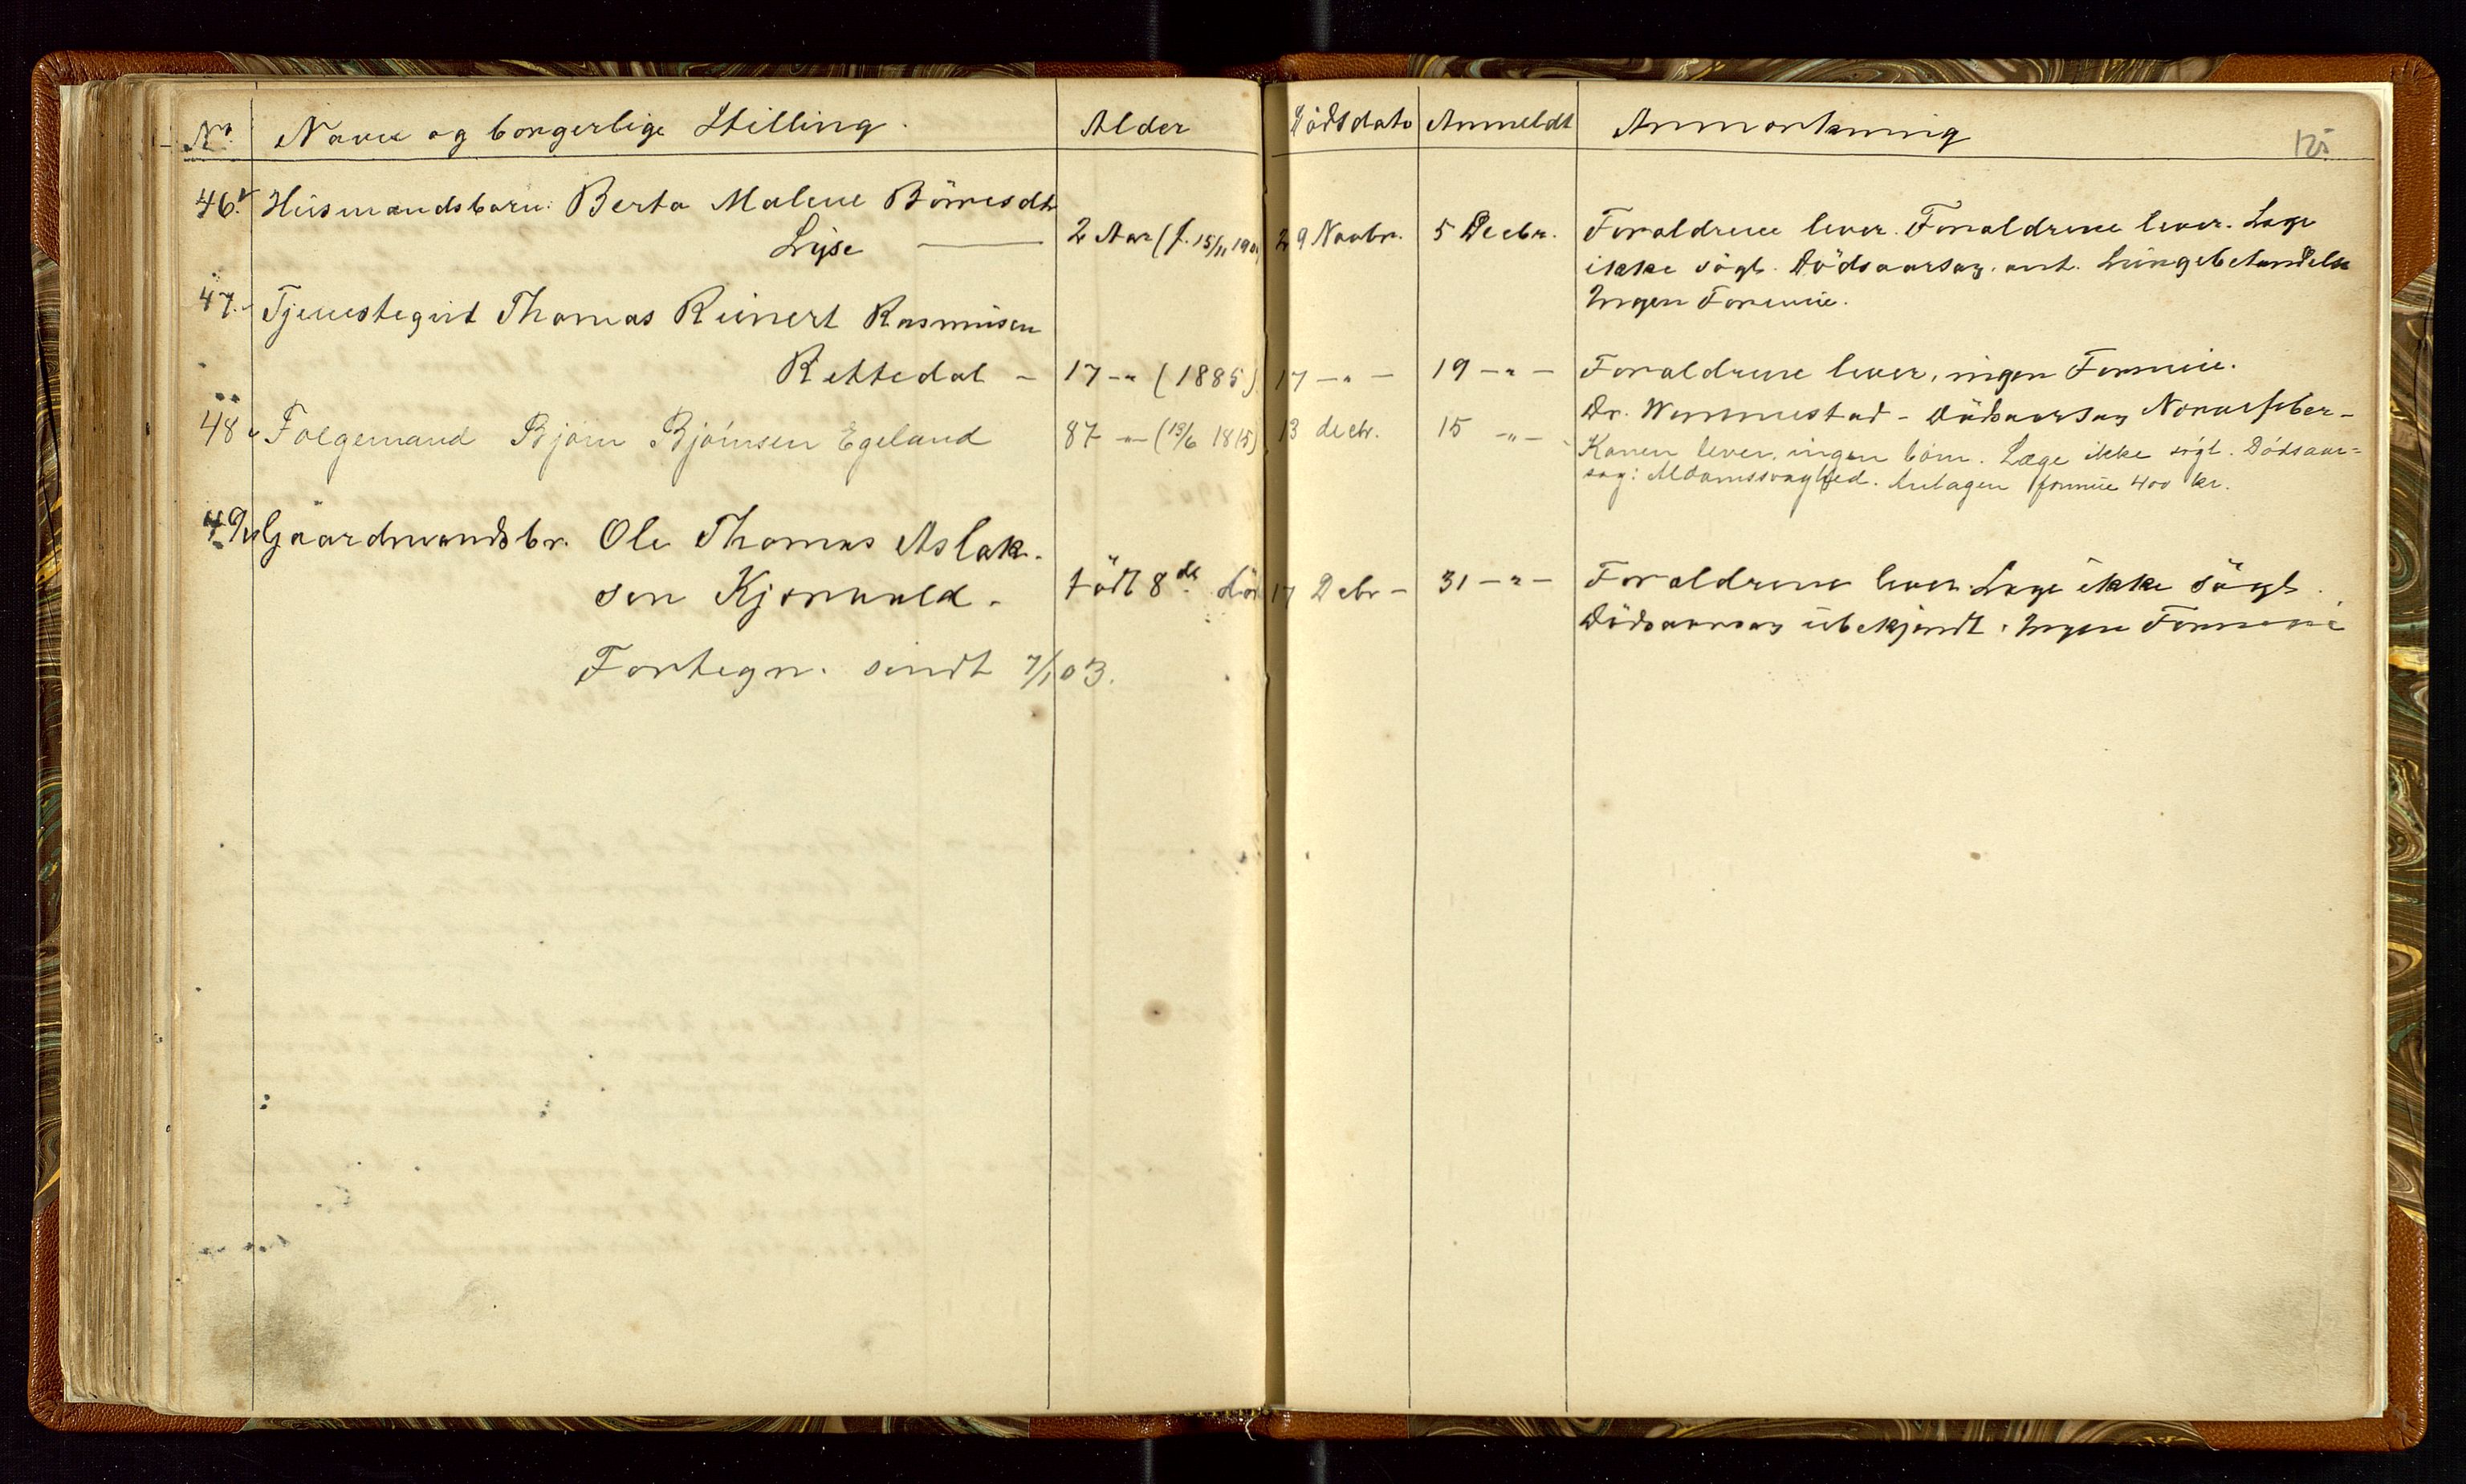 No. Navn og borgerlige Stilling. Alder Dödsdato Anmeldt Anmerkning 125
46. Husmandsbarn: Berta Malene Börresdtr
Lyse 2 Aar (f. 15/11 1900 29 Novbr. 5 Decbr. Foraldrene lever. Foraldrene lever. Lage
ikke sögt. Dödsaarsag. ant. Lungebetandelse
Ingen Formue.
47. Tjenestegut Thomas Reinert Rasmusen
Rettedal - 17 -"- (1885) 17 -"- 19 -"- Foraldrene lever, ingen Formue.
Dr. Wummestad - Dödsaarsag Nervefeber -
48 Folgemand Bjørn Bjørnsen Egeland 87 -"- (19/6 1815) 13 decbr. 15 -"-
Konen lever, ingen børn. Læge ikke søgt. Dødsaar=
sag: Alderdomssvaghed. Antagen formue 400 kr.
49 Gaardmandsbr. Ole Thomas Aslak-
sen Kjoravold - födt 8de dö 17 Debr - 31 -"- Foraldrene lever. Lage ikke sögt.
Dödsaarsag ubekjendt. Ingen Formue
Fortegn. sendt 7/1 03.